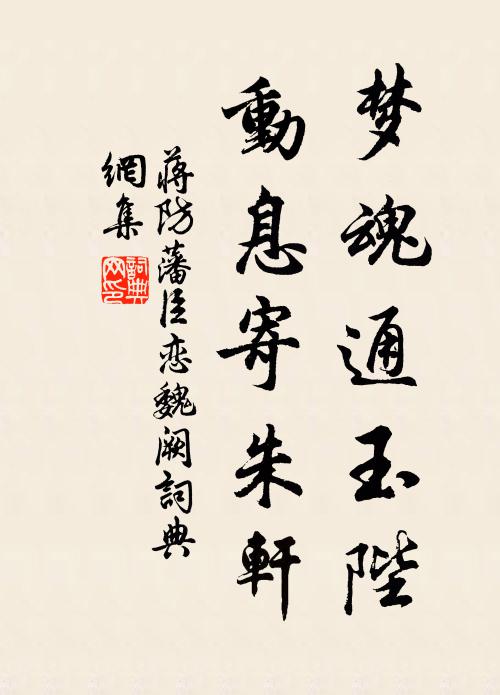 梦魂通玉陛
動息寄朱軒
蔣防藩臣恋魏阙詞典
網集
詞典
网印